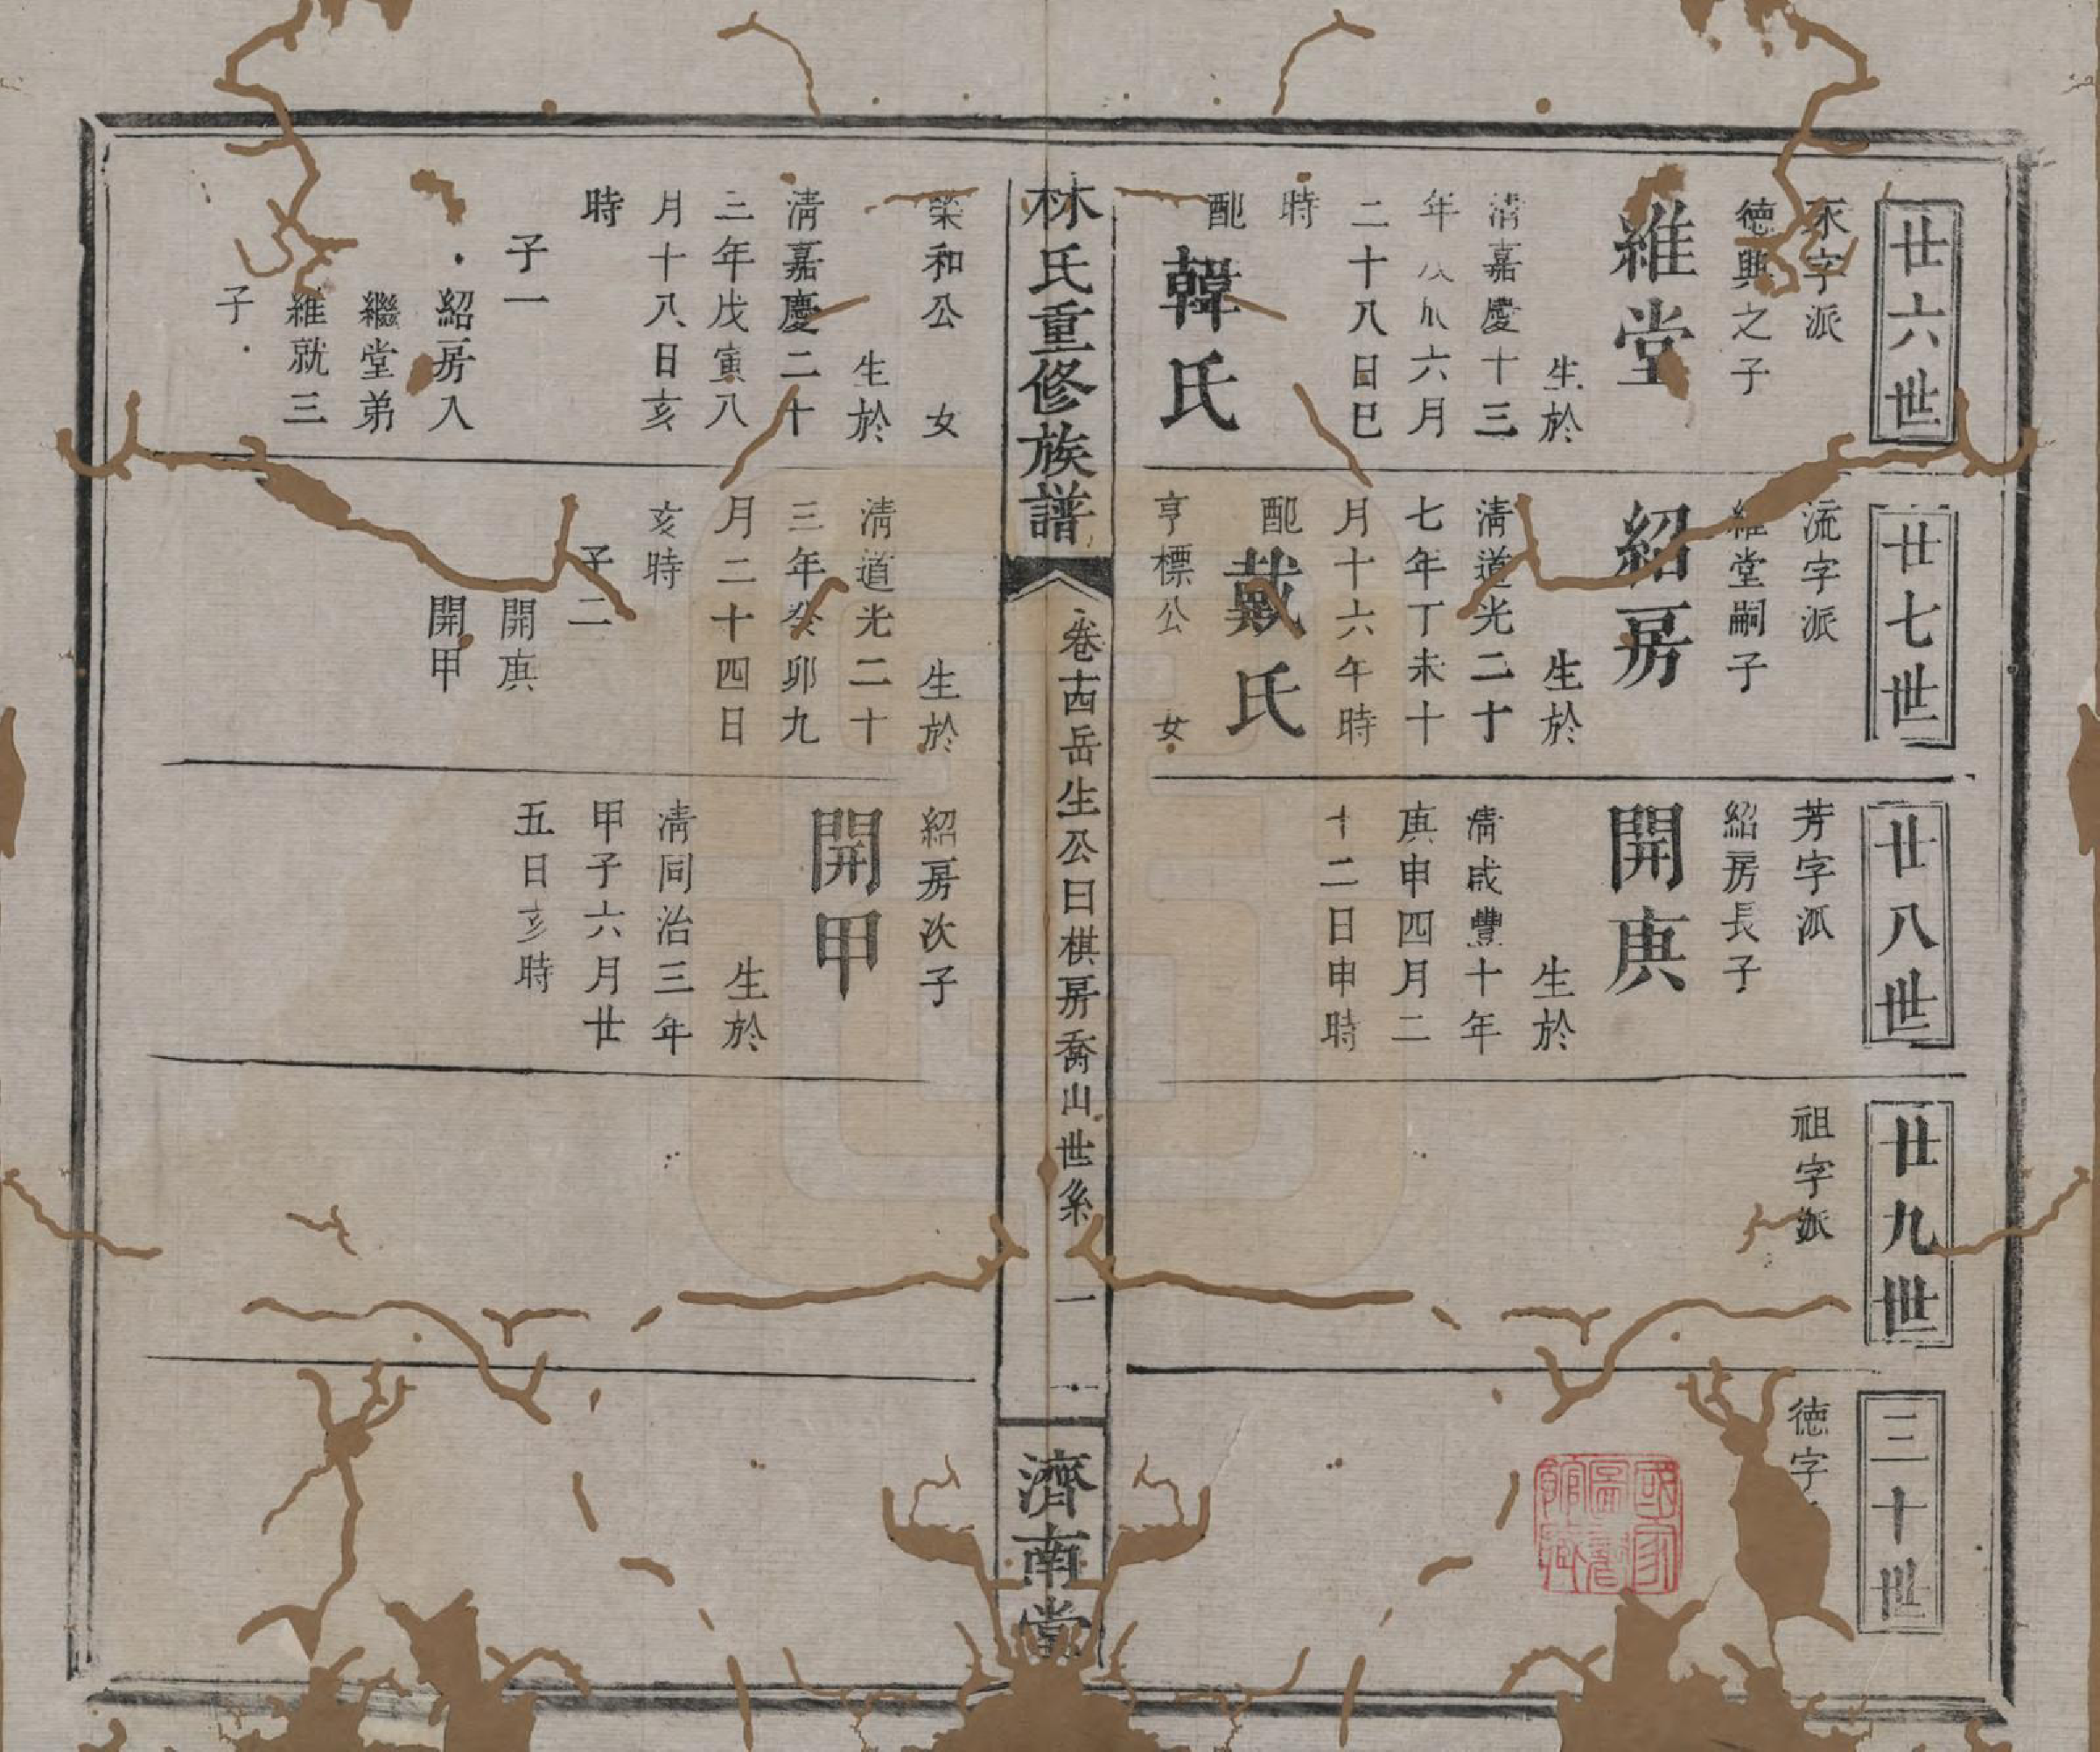 廿六世
字派
德興之子
維堂
生於
清嘉慶十三
年 六月
二十八日巳
時
配韓氏
榮和公 女
生於
清嘉慶二十
三年戊寅八
月十八日亥
時
子一
紹房入
繼堂弟
維就三
子
廿七世
流字派
維堂嗣子
紹房
生於
清道光二十
七年丁未十
月十六午時
配戴氏
亨標公 女
生於
清道光二十
三年癸卯九
月二十四日
亥時
子二
開庚
開甲
廿八世
芳字派
紹房長子
開庚
生於
清咸豐十年
庚申四月二
十二日申時
紹房次子
開甲
生於
清同治三年
甲子六月廿
五日亥時
廿九世
祖字派
三十世
德字
林氏重修族譜
卷十四岳生公曰棋房喬山世系
一
濟南堂
國家圖書館藏書